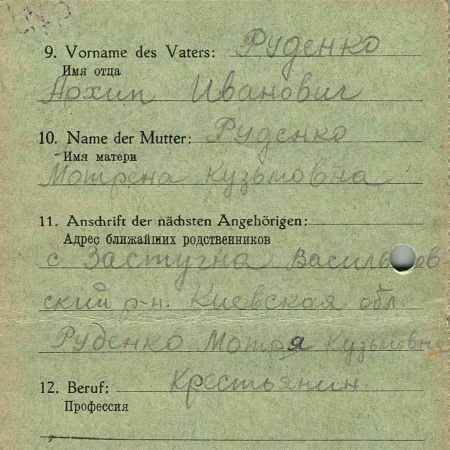 9. Vorname des Vaters: Руденко
Имя отца
Архип Иванович
10. Name der Mutter: Руденко
Имя матери
Мотрена Кузьмовна
11. Anschrift der nächsten Angehörigen:
Адрес ближайших родственников
с Застугна Васильков
ский р-н. Киевская обл
Руденко Мотря Кузьмовна
12. Beruf: Крестьянин
Профессия